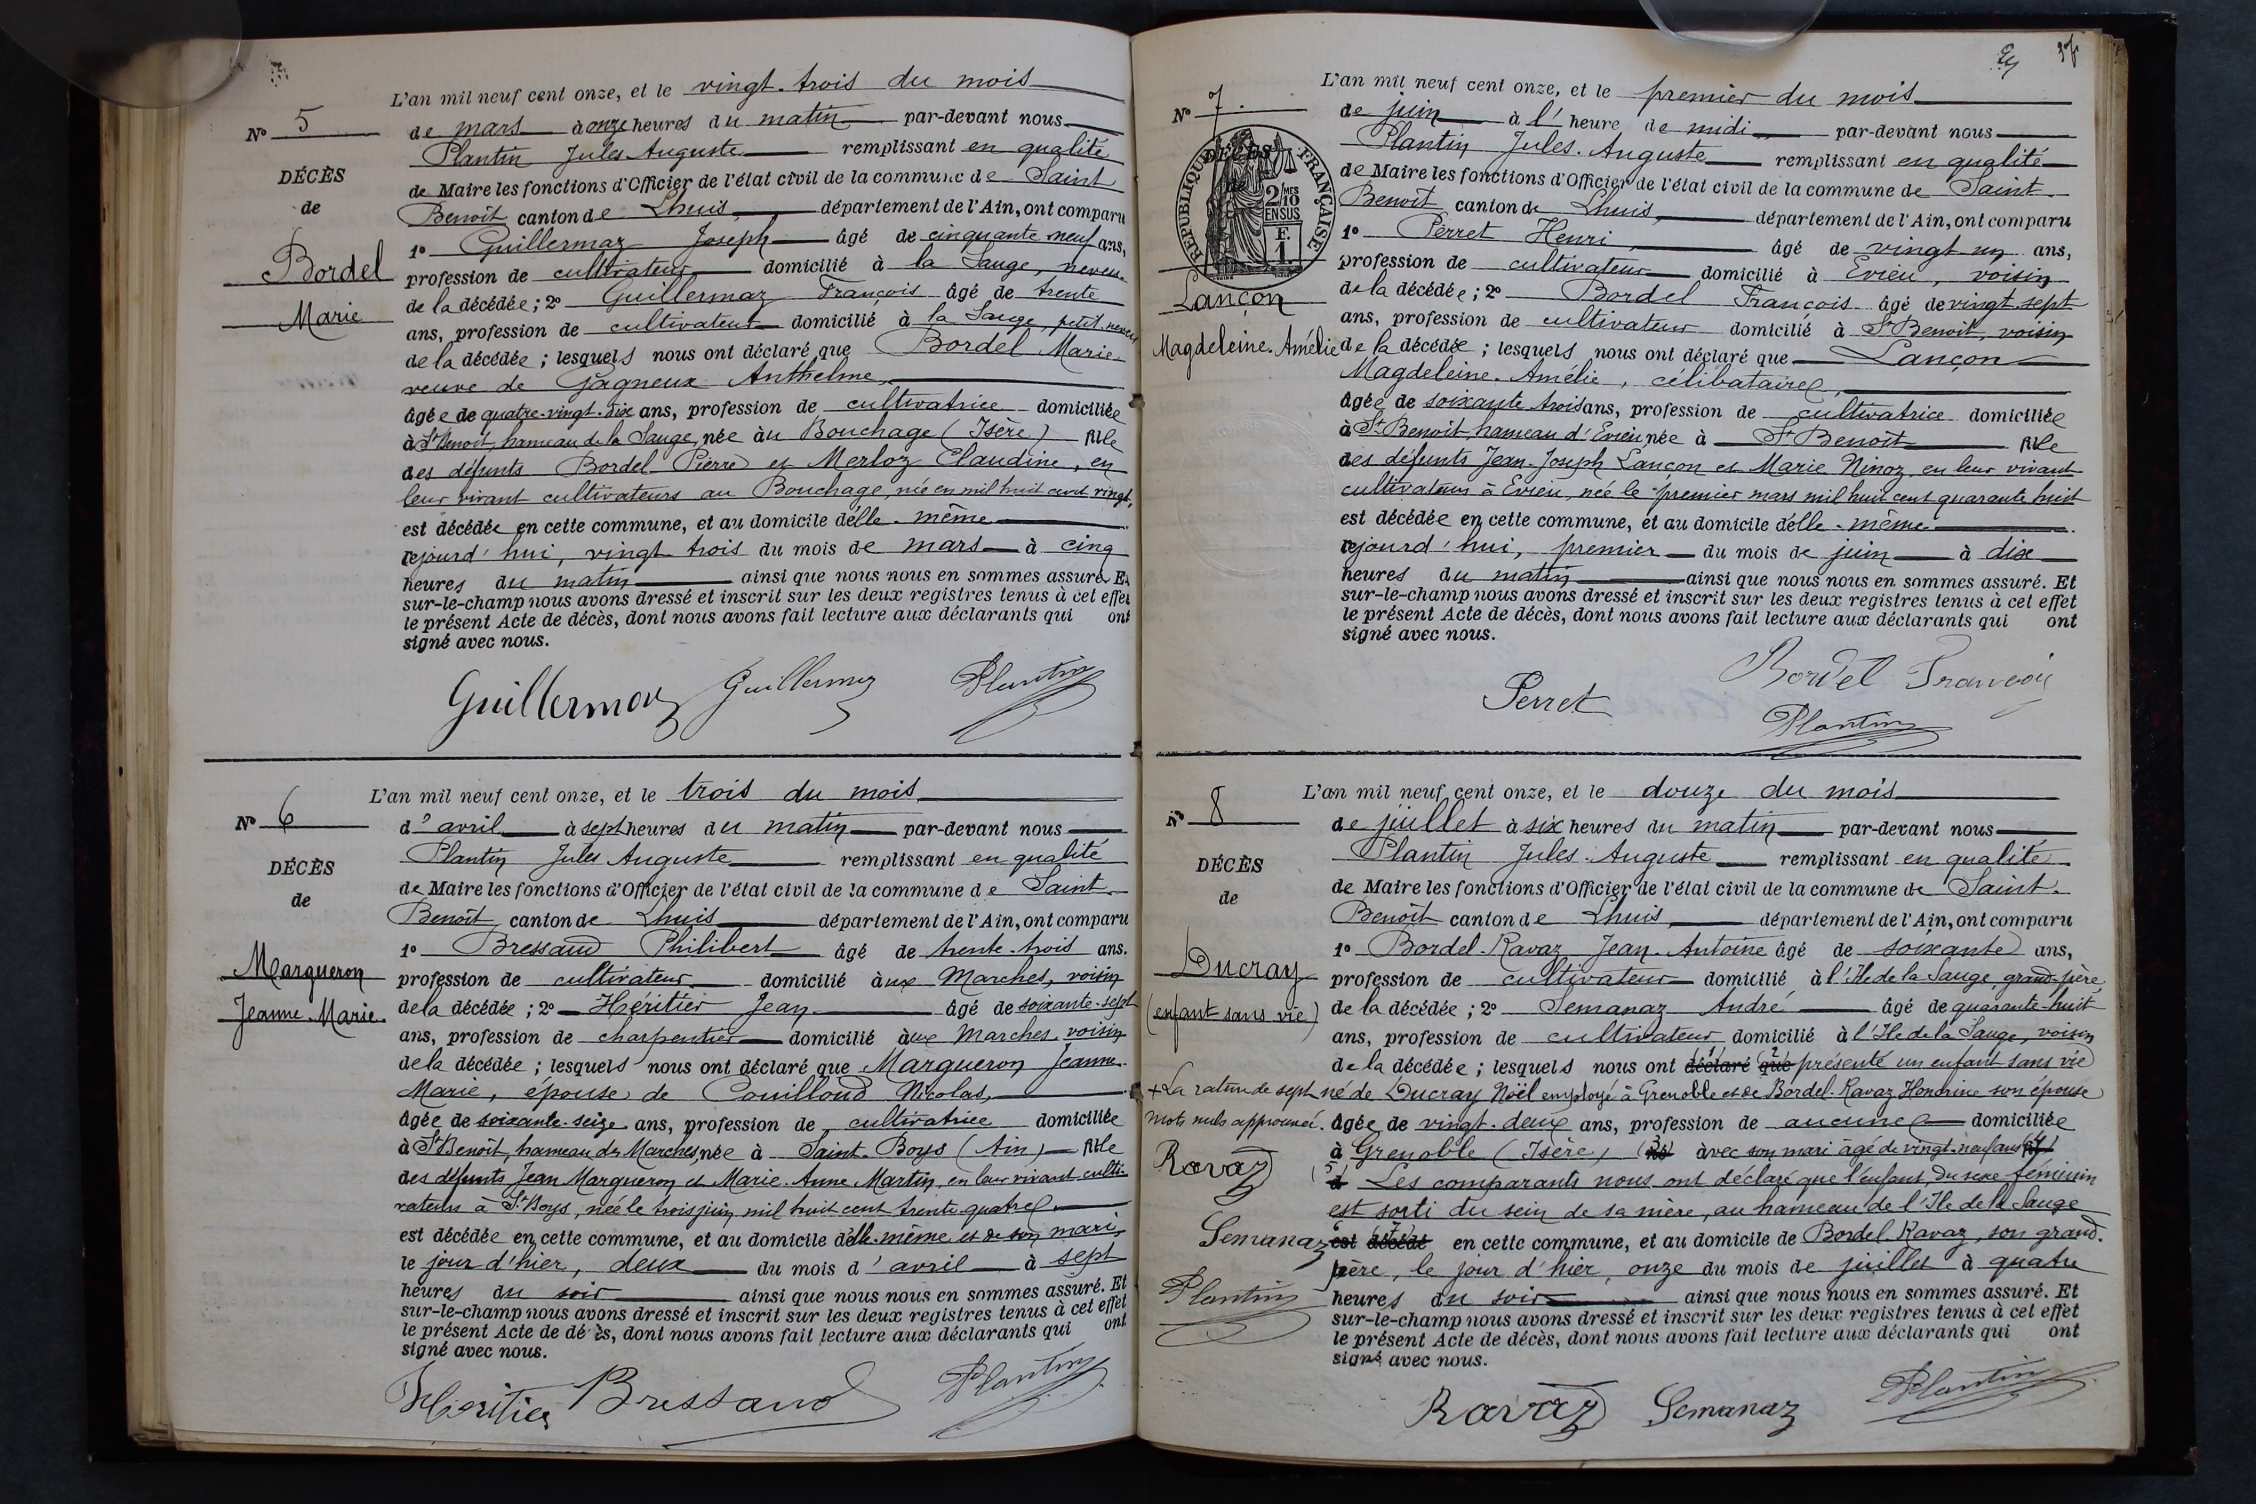 L'an mil neuf cent onze, et le vingt-trois du mois
N° 5
de mars à onze heures du matin par-devant nous
Plantin Jules Auguste remplissant en qualité
DÉCÈS
de Maire les fonctions d'Officier de l'état civil de la commune de Saint
de
Benoît canton de Lhuis, département de l'Ain, ont comparu
1° Guillermaz Joseph âgé de cinquante neuf ans,
Bordel
profession de cultivateur domicilié à la Sauge, neveu
Marie
de la décédée; 2° Guillermaz François âgé de trente
ans, profession de cultivateur domicilié à la Sauge, petit-neveu
de la décédée; lesquels nous ont déclaré que Bordel Marie
veuve de Gagneux Anthelme,
âgée de quatre-vingt-dix ans, profession de cultivatrice domiciliée
à St Benoît, hameau de la Sauge, née au Bouchage (Isère) fille
des défunts Bordel Pierre et Merloz Claudine, en
leur vivant cultivateurs au Bouchage, née en mil huit cent vingt,
est décédée en cette commune, et au domicile d'elle-même
cejourd'hui, vingt trois du mois de mars à cinq
heures du matin ainsi que nous nous en sommes assuré. Et
sur-le-champ nous avons dressé et inscrit sur les deux registres tenus à cet effet
le présent Acte de décès, dont nous avons fait lecture aux déclarants qui ont
signé avec nous.
Guillermaz Guillermaz Plantin
L'an mil neuf cent onze, et le trois du mois
N° 6
d'avril à sept heures du matin par-devant nous
Plantin Jules Auguste remplissant en qualité
DÉCÈS
de Maire les fonctions d'Officier de l'état civil de la commune de Saint
de
Benoît canton de Lhuis département de l'Ain, ont comparu
1° Bressaud Philibert âgé de trente-trois ans.
Margueron
profession de cultivateur domicilié aux Marches, voisin
Jeanne-Marie.
de la décédée; 2° Héritier Jean âgé de soixante-sept
ans, profession de charpentier domicilié aux Marches, voisin
de la décédée; lesquels nous ont déclaré que Margueron Jeanne-
Marie, épouse de Couilloud Nicolas,
âgée de soixante-seize ans, profession de cultivatrice domiciliée
à St Benoît, hameau des Marches, née à Saint-Boys (Ain) fille
des défunts Jean Margueron et Marie-Anne Martin, en leur vivant culti-
vateurs à St Boys, née le trois juin mil huit cent trente quatre
est décédée en cette commune, et au domicile d'elle-même et de son mari,
le jour d'hier, deux du mois d'avril à sept
heures du soir ainsi que nous nous en sommes assuré. Et
sur-le-champ nous avons dressé et inscrit sur les deux registres tenus à cet effet
le présent Acte de décès, dont nous avons fait lecture aux déclarants qui ont
signé avec nous.
Héritier Bressaud Plantin
L'an mil neuf cent onze, et le premier du mois
N° 7.
de juin à l'heure de midi par-devant nous
Plantin Jules-Auguste remplissant en qualité
DÉCÈS
de
RÉPUBLIQUE FRANÇAISE
2/10 MES
EN SUS
F.
1.
de Maire les fonctions d'Officier de l'état civil de la commune de Saint
Benoît canton de Lhuis, département de l'Ain, ont comparu
1° Perret Henri, âgé de vingt un ans,
profession de cultivateur domicilié à Evieu, voisin
Lançon
de la décédée; 2° Bordel François âgé de vingt-sept
ans, profession de cultivateur domicilié à St Benoît, voisin
Magdeleine-Amélie
de la décédée; lesquels nous ont déclaré que Lançon
Magdeleine-Amélie, célibataire,
âgée de soixante trois ans, profession de cultivatrice domiciliée
à St Benoît, hameau d'Evieu née à St Benoît fille
des défunts Jean-Joseph Lançon et Marie Ninoz, en leur vivant
cultivateurs à Evieu, née le premier mars mil huit cent quarante huit
est décédée en cette commune, et au domicile d'elle-même
cejourd'hui, premier du mois de juin à dix
heures du matin ainsi que nous nous en sommes assuré. Et
sur-le-champ nous avons dressé et inscrit sur les deux registres tenus à cet effet
le présent Acte de décès, dont nous avons fait lecture aux déclarants qui ont
signé avec nous.
Perret Bordel François
Plantin
L'an mil neuf cent onze, et le douze du mois
N° 8
de juillet à six heures du matin par-devant nous
Plantin Jules-Auguste remplissant en qualité
DÉCÈS
de Maire les fonctions d'Officier de l'état civil de la commune de Saint-
de
Benoît canton de Lhuis, département de l'Ain, ont comparu
1° Bordel-Ravaz Jean-Antoine âgé de soixante ans,
Ducray
profession de cultivateur domicilié à l'Ile de la Sauge, grand-père
(enfant sans vie)
de la décédée; 2° Semanaz André âgé de quarante-huit
ans, profession de cultivateur domicilié à l'Ile de la Sauge, voisin
de la décédée; lesquels nous ont déclaré que présenté un enfant sans vie
+ La rature de sept
mots nuls approuvée.
né de Ducray Noël employé à Grenoble et de Bordel-Ravaz Honorine son épouse
âgée de vingt-deux ans, profession de aucune domiciliée
à Grenoble (Isère) avec son mari âgé de vingt-neuf ans
Les comparants nous ont déclaré que l'enfant, du sexe féminin
est sorti du sein de sa mère, au hameau de l'Ile de la Sauge
est décédé en cette commune, et au domicile de Bordel-Ravaz, son grand-
père, le jour d'hier, onze du mois de juillet à quatre
heures du soir ainsi que nous nous en sommes assuré. Et
sur-le-champ nous avons dressé et inscrit sur les deux registres tenus à cet effet
le présent Acte de décès, dont nous avons fait lecture aux déclarants qui ont
signé avec nous.
Ravaz
Semanaz
Plantin
Ravaz Semanaz Plantin